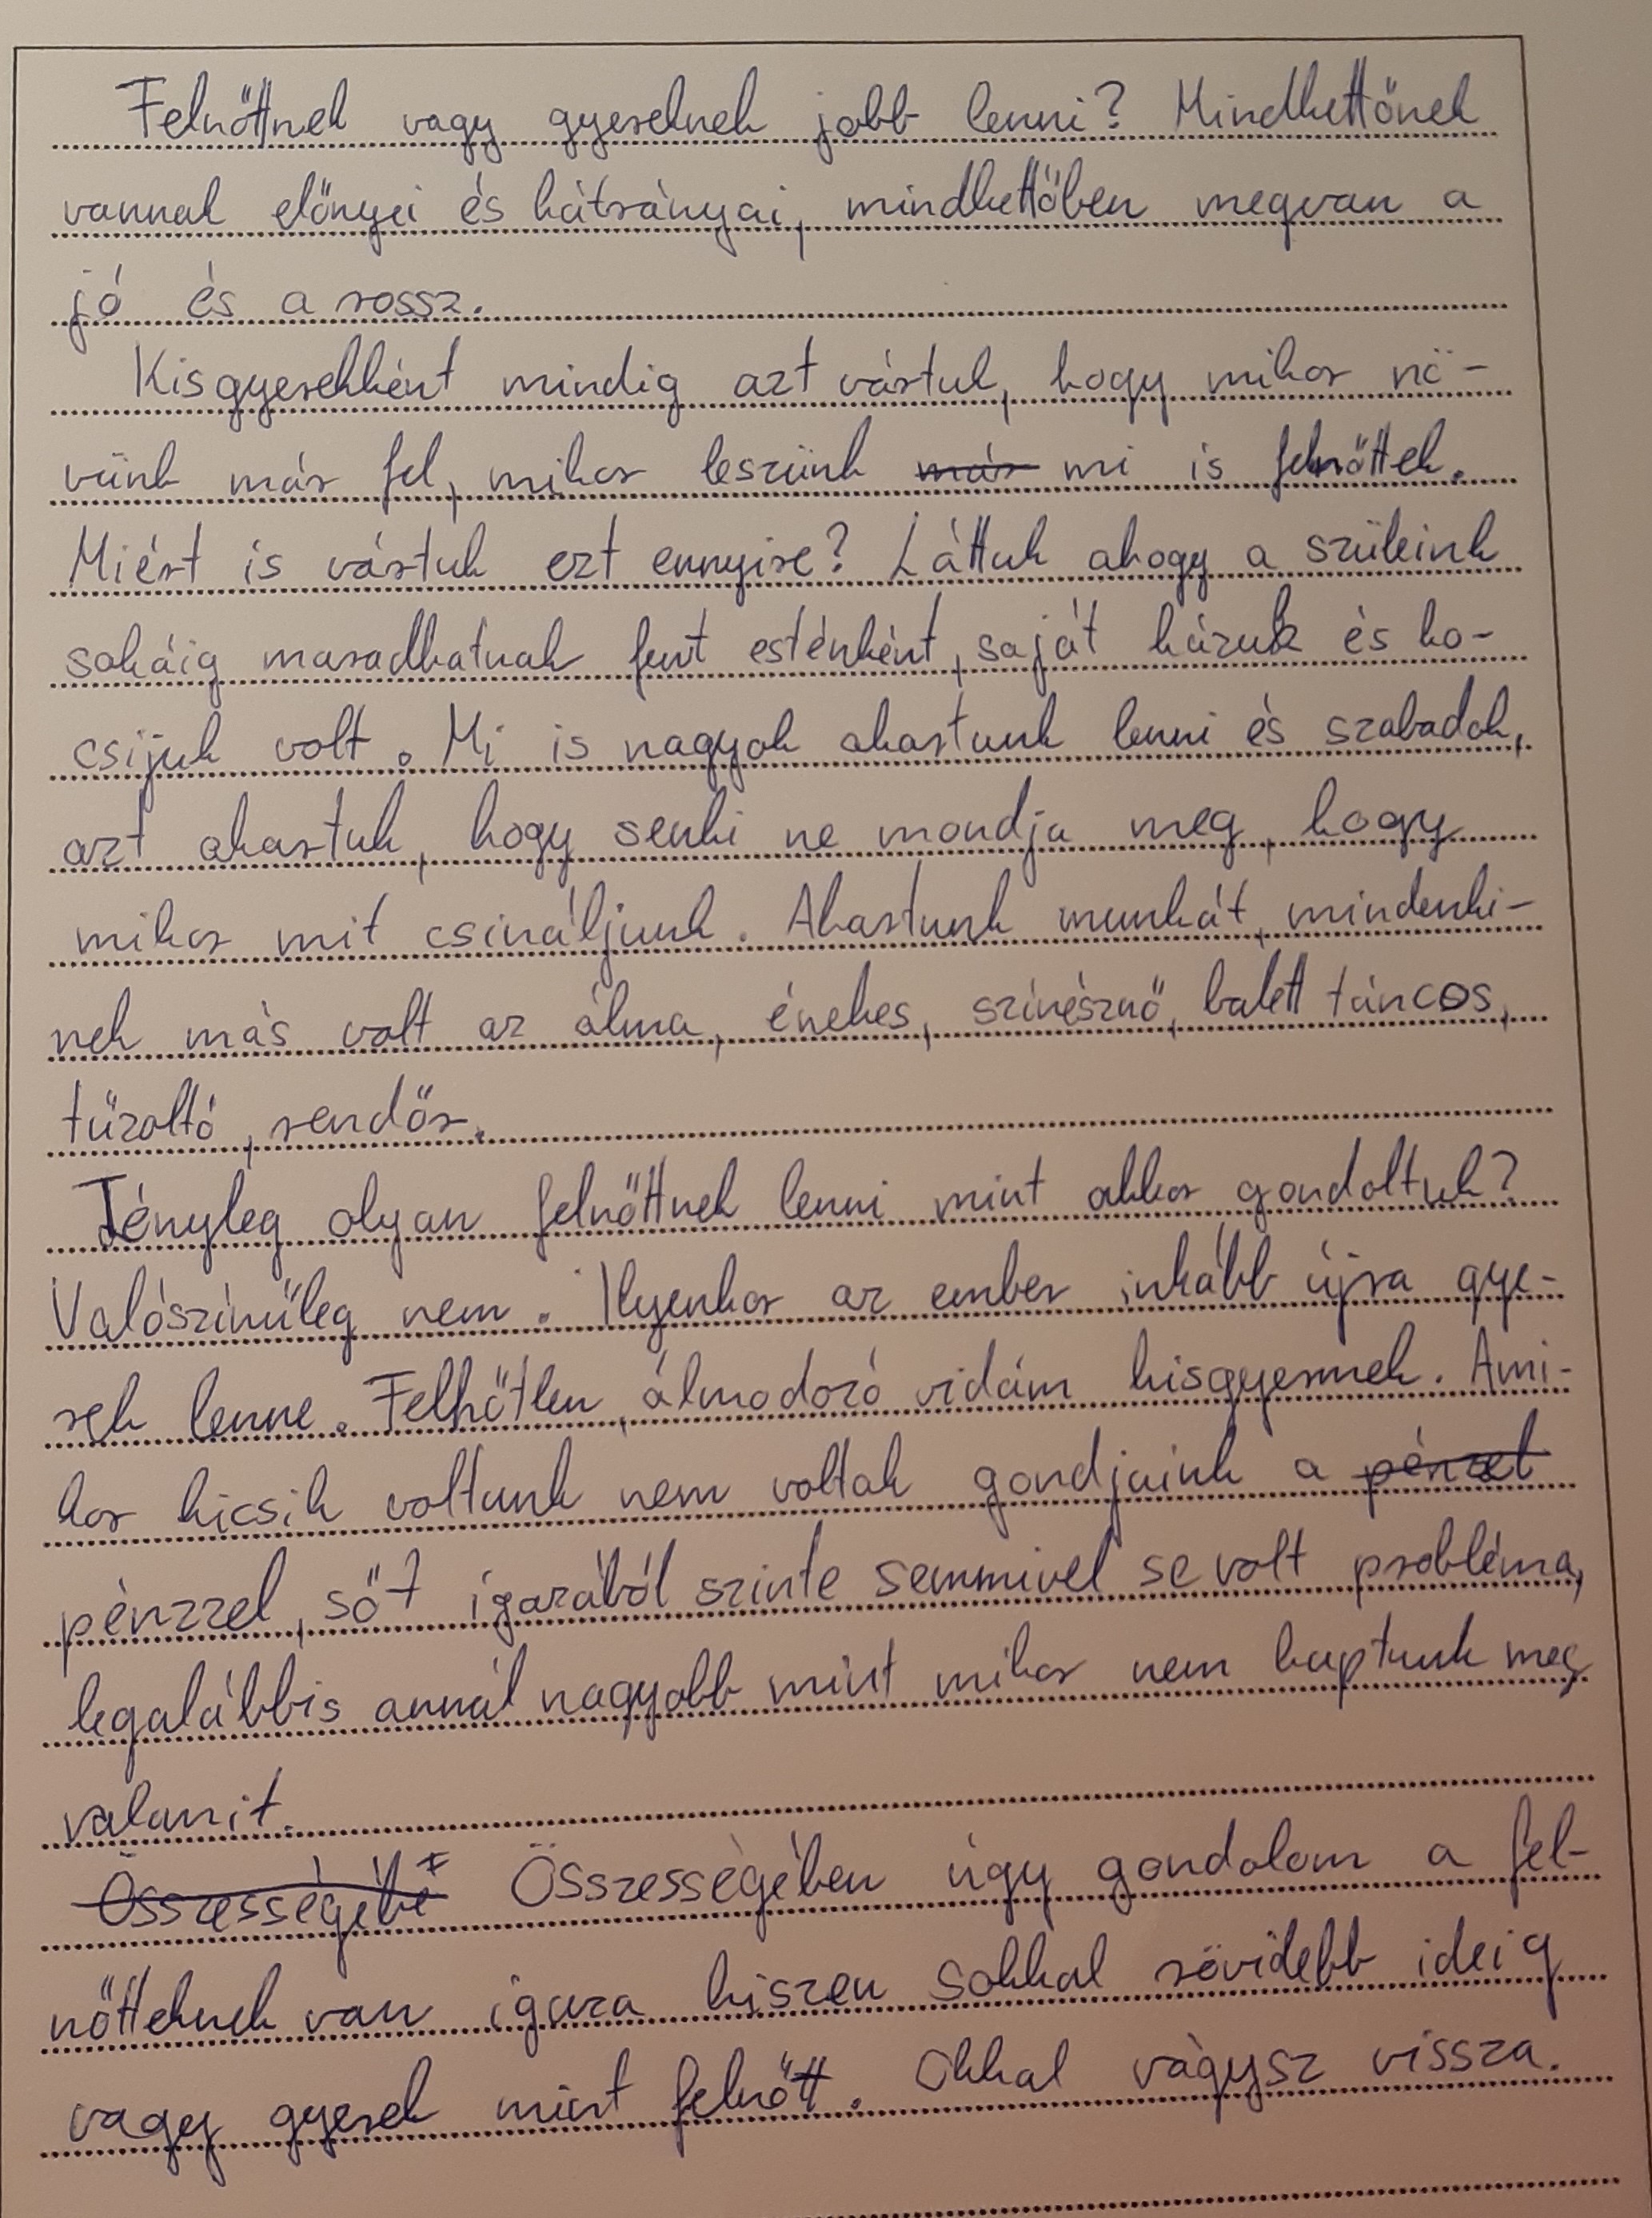 Felnőttnek vagy gyereknek jobb lenni? Mindkettőnek
vannak előnyei és hátrányai, mindkettőben megvan a
jó és a rossz.
Kisgyerekként mindig azt vártuk, hogy mikor nö-
vünk már fel, mikor leszünk már mi is felnőttek.
Miért is vártuk ezt ennyire? Láttuk ahogy a szüleink
sokáig maradhatnak fent esténként, saját házuk és ko-
csijuk volt. Mi is nagyok akartunk lenni és szabadok,
azt akartuk, hogy senki ne mondja meg, hogy
mikor mit csináljunk. Akartunk munkát, mindenki-
nek más volt az álma, énekes, színésznő, balett táncos,
tűzoltó, rendőr.
Tényleg olyan felnőttnek lenni mint akkor gondoltuk?
Valószínűleg nem. Ilyenkor az ember inkább újra gye-
rek lenne. Felhőtlen, álmodozó vidám kisgyermek. Ami-
kor kicsik voltunk nem voltak gondjaink a pénzel
pénzzel, sőt igazából szinte semmivel se volt probléma,
legalábbis annál nagyobb mint mikor nem kaptunk meg
valamit.
Összességébe Összességében úgy gondolom a fel-
nőtteknek van igaza hiszen sokkal rövidebb ideig
vagy gyerek mint felnőtt. Okkal vágysz vissza.